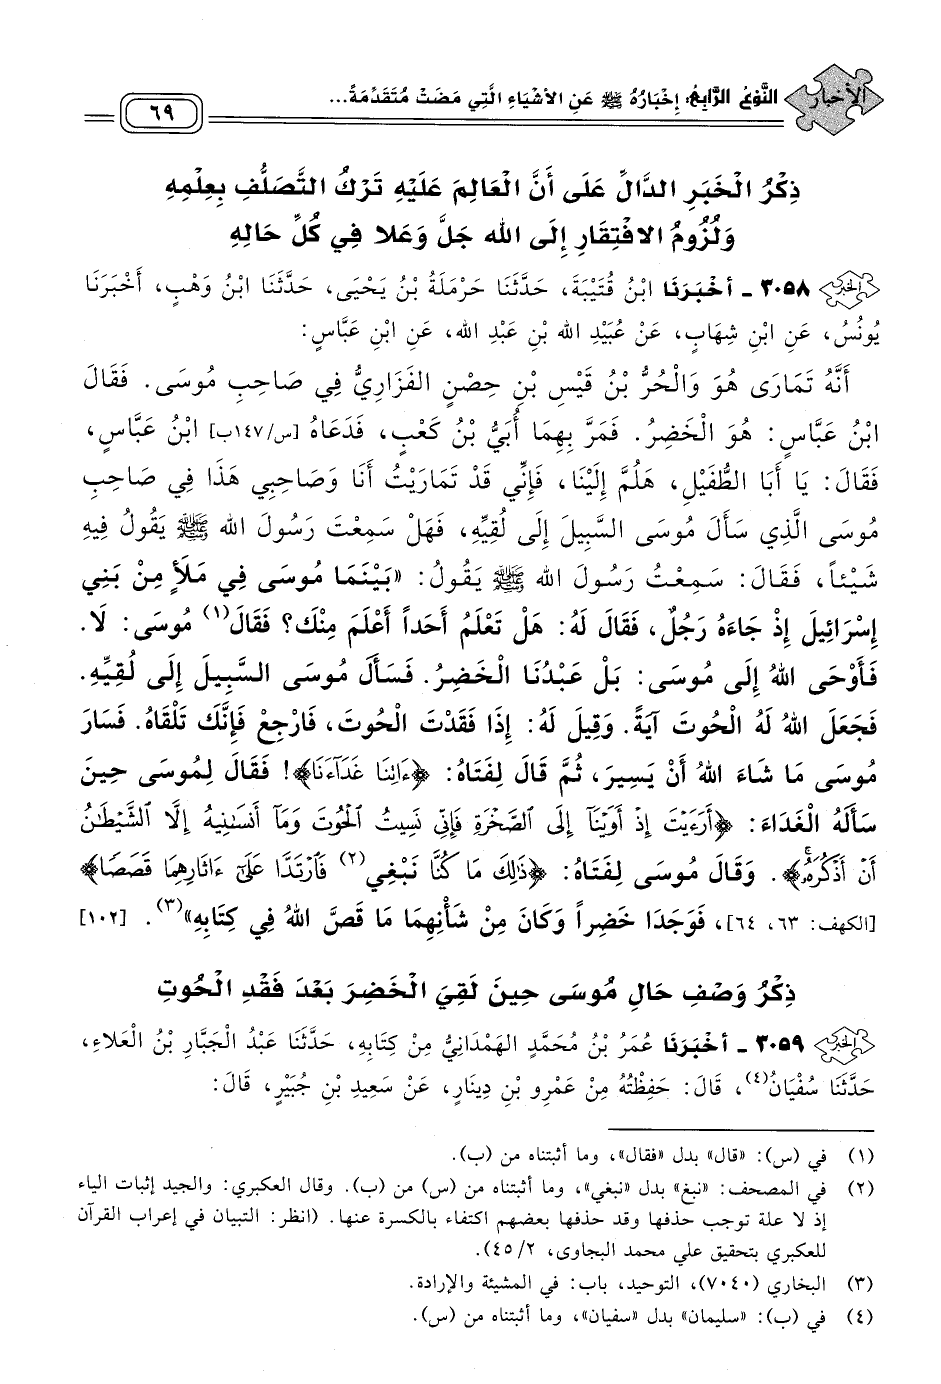 الأخبار
النَّوْعُ الرَّابِعُ: إِخْبَارُهُ ﷺ عَنِ الأَشْيَاءِ الَّتِي مَضَتْ مُتَقَدِّمَةً...
٦٩
ذِكْرُ الْخَبَرِ الدَّالِّ عَلَى أَنَّ الْعَالِمَ عَلَيْهِ تَرْكُ التَّصَلُّفِ بِعِلْمِهِ
وَلُزُومُ الافْتِقَارِ إِلَى الله جَلَّ وَعَلا فِي كُلِّ حَالِهِ
الخبر ٣٠٥٨ - أَخْبَرَنَا ابْنُ قُتَيْبَةَ، حَدَّثَنَا حَرْمَلَةُ بْنُ يَحْيَى، حَدَّثَنَا ابْنُ وَهْبٍ، أَخْبَرَنَا
يُونُسُ، عَنِ ابْنِ شِهَابٍ، عَنْ عُبَيْدِ الله بْنِ عَبْدِ الله، عَنِ ابْنِ عَبَّاسٍ:
أَنَّهُ تَمَارَى هُوَ وَالْحُرُّ بْنُ قَيْسِ بْنِ حِصْنٍ الفَزَارِيُّ فِي صَاحِبِ مُوسَى. فَقَالَ
ابْنُ عَبَّاسٍ: هُوَ الْخَضِرُ. فَمَرَّ بِهِمَا أُبَيُّ بْنُ كَعْبٍ، فَدَعَاهُ [س/١٤٧ب] ابْنُ عَبَّاسٍ،
فَقَالَ: يَا أَبَا الطُّفَيْلِ، هَلُمَّ إِلَيْنَا، فَإِنِّي قَدْ تَمَارَيْتُ أَنَا وَصَاحِبِي هَذَا فِي صَاحِبِ
مُوسَى الَّذِي سَأَلَ مُوسَى السَّبِيلَ إِلَى لُقِيِّهِ، فَهَلْ سَمِعْتَ رَسُولَ الله ﷺ يَقُولُ فِيهِ
شَيْئاً، فَقَالَ: سَمِعْتُ رَسُولَ الله ﷺ يَقُولُ: «بَيْنَمَا مُوسَى فِي مَلأٍ مِنْ بَنِي
إِسْرَائِيلَ إِذْ جَاءَهُ رَجُلٌ، فَقَالَ لَهُ: هَلْ تَعْلَمُ أَحَداً أَعْلَمَ مِنْكَ؟ فَقَالَ(١) مُوسَى: لَا.
فَأَوْحَى اللهُ إِلَى مُوسَى: بَلْ عَبْدُنَا الْخَضِرُ. فَسَأَلَ مُوسَى السَّبِيلَ إِلَى لُقِيِّهِ.
فَجَعَلَ اللهُ لَهُ الْحُوتَ آيَةً. وَقِيلَ لَهُ: إِذَا فَقَدْتَ الْحُوتَ، فَارْجِعْ فَإِنَّكَ تَلْقَاهُ. فَسَارَ
مُوسَى مَا شَاءَ اللهُ أَنْ يَسِيرَ، ثُمَّ قَالَ لِفَتَاهُ: ﴿ءَاتِنَا غَدَآءَنَا﴾! فَقَالَ لِمُوسَى حِينَ
سَأَلَهُ الْغَدَاءَ: ﴿أَرَءَيْتَ إِذْ أَوَيْنَآ إِلَى ٱلصَّخْرَةِ فَإِنِّي نَسِيتُ ٱلْحُوتَ وَمَآ أَنسَىٰنِيهُ إِلَّا ٱلشَّيْطَٰنُ
أَنْ أَذْكُرَهُۥ﴾. وَقَالَ مُوسَى لِفَتَاهُ: ﴿ذَٰلِكَ مَا كُنَّا نَبْغِي(٢) فَٱرْتَدَّا عَلَىٰٓ ءَاثَارِهِمَا قَصَصًا﴾
[الكهف: ٦٣، ٦٤]، فَوَجَدَا خَضِراً وَكَانَ مِنْ شَأْنِهِمَا مَا قَصَّ اللهُ فِي كِتَابِهِ»(٣). [١٠٢]
ذِكْرُ وَصْفِ حَالِ مُوسَى حِينَ لَقِيَ الْخَضِرَ بَعْدَ فَقْدِ الْحُوتِ
الخبر ٣٠٥٩ - أَخْبَرَنَا عُمَرُ بْنُ مُحَمَّدٍ الهَمْدَانِيُّ مِنْ كِتَابِهِ، حَدَّثَنَا عَبْدُ الْجَبَّارِ بْنُ الْعَلاءِ،
حَدَّثَنَا سُفْيَانُ(٤)، قَالَ: حَفِظْتُهُ مِنْ عَمْرِو بْنِ دِينَارٍ، عَنْ سَعِيدِ بْنِ جُبَيْرٍ، قَالَ:
(١) في (س): «قال» بدل «فقال»، وما أثبتناه من (ب).
(٢) في المصحف: «نبغ» بدل «نبغي»، وما أثبتناه من (س) من (ب). وقال العكبري: والجيد إثبات الياء
إذ لا علة توجب حذفها وقد حذفها بعضهم اكتفاء بالكسرة عنها. (انظر: التبيان في إعراب القرآن
للعكبري بتحقيق علي محمد البجاوى، ٢/ ٤٥).
(٣) البخاري (٧٠٤٠)، التوحيد، باب: في المشيئة والإرادة.
(٤) في (ب): «سليمان» بدل «سفيان»، وما أثبتناه من (س).